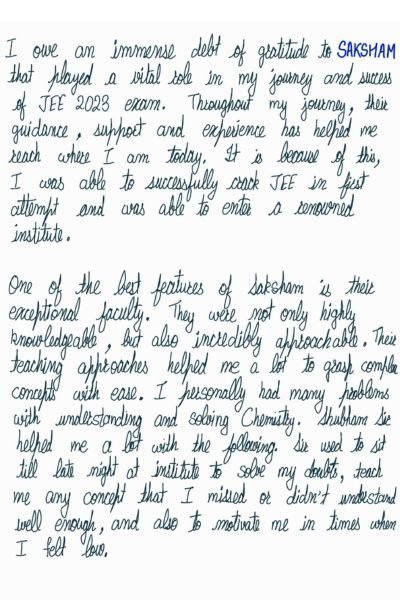 I owe an immense debt of gratitude to SAKSHAM
that played a vital role in my journey and success
of JEE 2023 exam. Throughout my journey, their
guidance, support and experience has helped me
reach where I am today. It is because of this,
I was able to successfully crack JEE in first
attempt and was able to enter a renowned
institute.
One of the best features of Saksham is their
exceptional faculty. They were not only highly
knowledgeable, but also incredibly approachable. Their
teaching approaches helped me a lot to grasp complex
concepts with ease. I personally had many problems
with understanding and solving Chemistry. Shubham Sir
helped me a lot with the following. Sir used to sit
till late night at institute to solve my doubts, teach
me any concept that I missed or didn't understand
well enough, and also to motivate me in times when
I felt low.